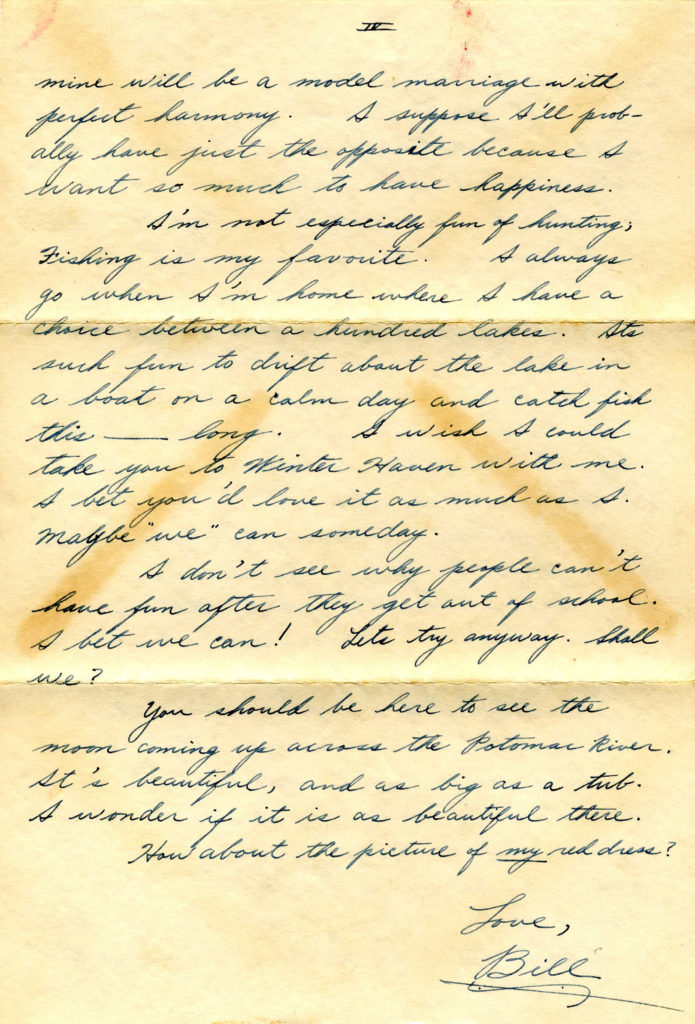 IV
mine will be a model marriage with
perfect harmony. I suppose I'll prob-
ally have just the opposite because I
want so much to have happiness.
I'm not especially fun of hunting;
Fishing is my favorite. I always
go when I'm home where I have a
choice between a hundred lakes. Its
such fun to drift about the lake in
a boat on a calm day and catch fish
this —— long. I wish I could
take you to Winter Haven with me.
I bet you'd love it as much as I.
Maybe "we" can someday.
I don't see why people can't
have fun after they get out of school.
I bet we can! Lets try anyway. Shall
we?
You should be here to see the
moon coming up across the Potomac River.
It's beautiful, and as big as a tub.
I wonder if it is as beautiful there.
How about the picture of my red dress?
Love,
Bill